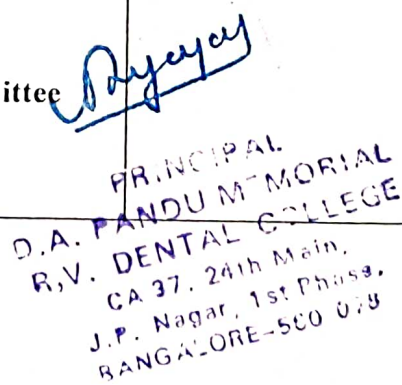 ittee
PRINCIPAL
D.A. PANDU MEMORIAL
R.V. DENTAL COLLEGE
CA 37, 24th Main,
J.P. Nagar, 1st Phase,
BANGALORE-560 078